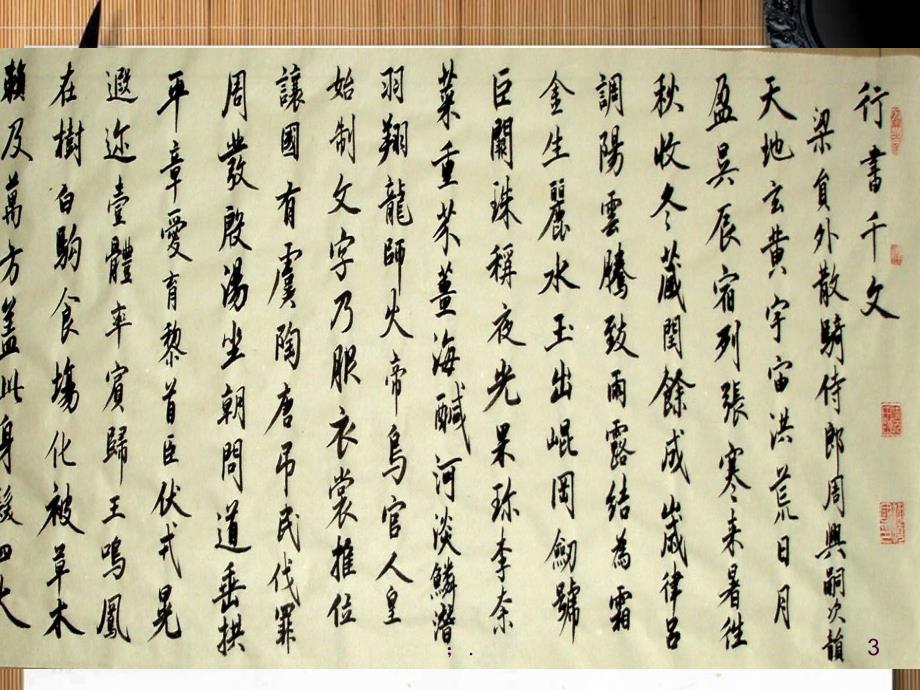 行書千文
梁員外散騎侍郎周興嗣次韻
天地玄黄宇宙洪荒日月
盈昃辰宿列張寒来暑往
秋收冬藏閏餘成歲律吕
調陽雲騰致雨露結為霜
金生麗水玉出崐岡劒號
巨闕珠稱夜光果珍李柰
菜重芥薑海鹹河淡鱗潛
羽翔龍師火帝鳥官人皇
始制文字乃服衣裳推位
讓國有虞陶唐吊民伐罪
周發殷湯坐朝問道垂拱
平章愛育黎首臣伏戎羌
遐迩壹體率賓歸王鳴鳳
在樹白駒食場化被草木
賴及萬方蓋此身髮四大
；.
3